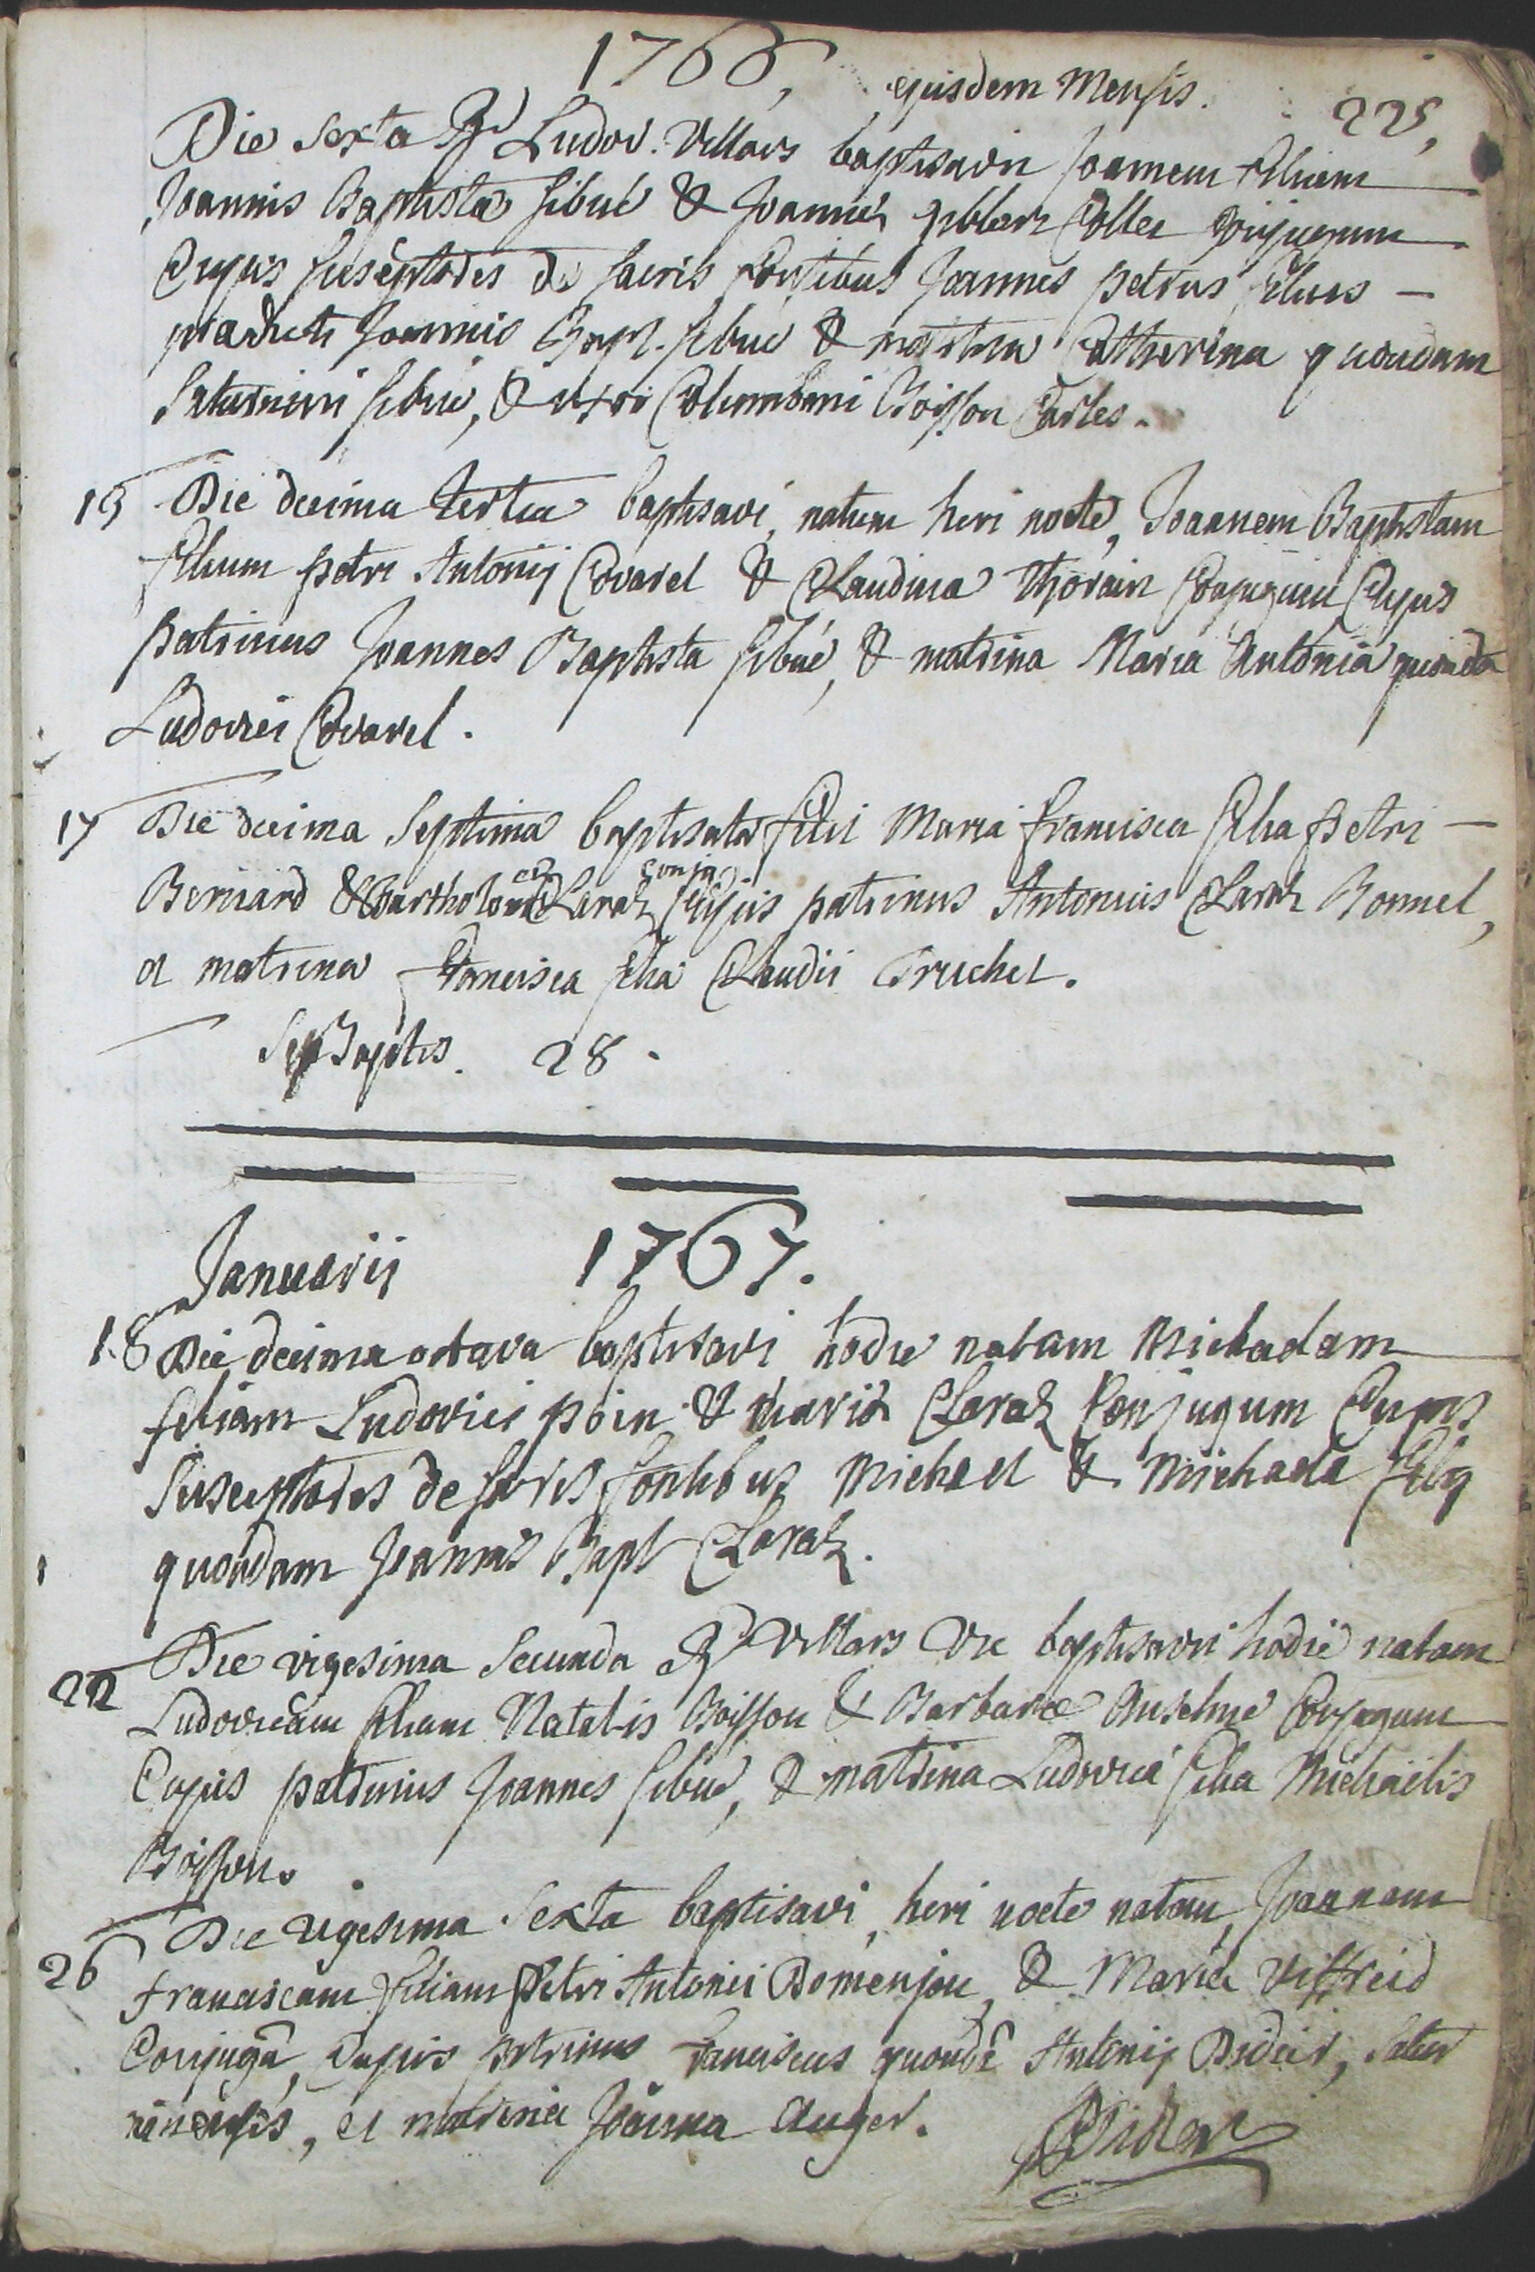 1766, ejusdem Mensis. 225,
Die sexta Rd Ludov. Villars baptisavit Joannem filium
Joannis Baptista sibué & Joannæ Collet Conjugum
Cujus susceptores de sacris fontibus Joannes petrus filius —
prædicti Joannis Bapt. sibué & matrina Catherina quondam
Saturnini sibué, & uxor Columbani Boisson Carles.
13 Die decima tertia baptisavi, natum heri nocte, Joannem Baptistam
filium petri Antonij Covarel & Claudiæ Thorain Conjugum Cujus
patrinus Joannes Baptista sibué, & matrina Maria Antonia quonda
Ludovici Covarel.
17 Die decima septima baptisata fuit Maria francisca filia petri —
Bernard & Bartholomeæ Claraz conjg Cujus patrinus Antonius Claraz Bonnel,
et matrina francisca filia Claudii Truchet.
Baptis. 28.
Januarij 1767.
18 Die decima octava baptisavi hodie natam Michaelam
filiam Ludovici poin & mariæ Claraz Conjugum Cujus
Susceptores de sacris fontibus Michael & Michaela filij
quondam Joannis Bapt Claraz.
22 Die vigesima secunda Rd Villars Vic baptisavit hodie natam
Ludovicam filiam Natalis Boisson & Barbaræ Anselme Conjugum
Cujus patrinus Joannes sibué, & matrina Ludovica filia Michaëlis
Boisson.
26 Die vigesima sexta baptisavi, heri nocte natam, Joannam
franciscam filiam Petri Antonii Domenjou, & Mariæ Viffreid
Conjugū, Cujus patrinus franciscus quondā Antonij Didier, Satur
ninensis, et matrina Joanna Auger. Didier